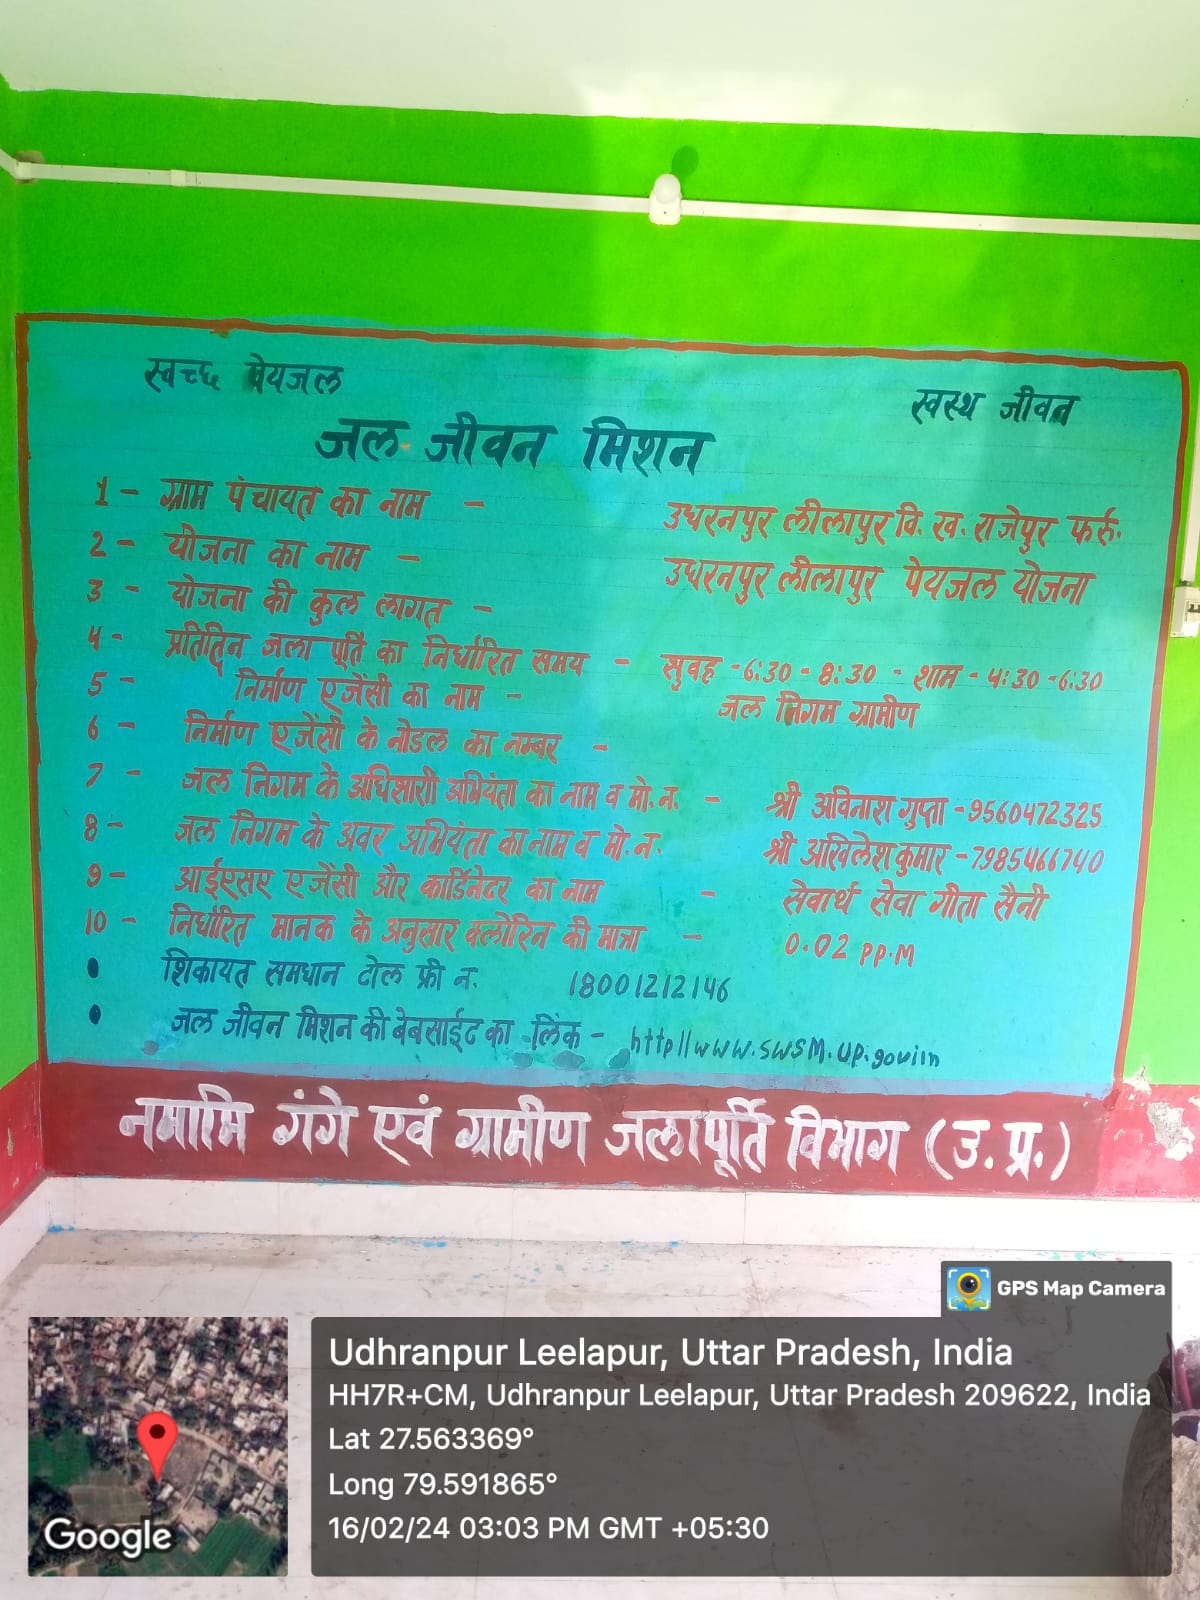 स्वच्छ पेयजल
स्वस्थ जीवन
जल जीवन मिशन
1 - ग्राम पंचायत का नाम - उधरनपुर लीलापुर वि. ख. राजेपुर फर्रु.
2 - योजना का नाम - उधरनपुर लीलापुर पेयजल योजना
3 - योजना की कुल लागत -
4 - प्रतिदिन जला पूर्ति का निर्धारित समय - सुवह - 6:30 - 8:30 - शाम - 4:30 - 6:30
5 - निर्माण एजेंसी का नाम - जल निगम ग्रामीण
6 - निर्माण एजेंसी के नोडल का नम्बर -
7 - जल निगम के अधिशासी अभियंता का नाम व मो. न. - श्री अविनाश गुप्ता - 9560472325
8 - जल निगम के अवर अभियंता का नाम व मो. न. श्री अखिलेश कुमार - 7985466740
9 - आईएसए एजेंसी और कार्डिनेटर का नाम - सेवार्थ सेवा गीता सैनी
10 - निर्धारित मानक के अनुसार क्लोरिन की मात्रा - 0.02 PP.M
• शिकायत समधान टोल फ्री न. 18001212146
• जल जीवन मिशन की बेबसाईट का लिंक - http||www.SWSM.UP.goviin
नमामि गंगे एवं ग्रामीण जलापूर्ति विभाग (उ. प्र.)
GPS Map Camera
Udhranpur Leelapur, Uttar Pradesh, India
HH7R+CM, Udhranpur Leelapur, Uttar Pradesh 209622, India
Lat 27.563369°
Long 79.591865°
16/02/24 03:03 PM GMT +05:30
Google